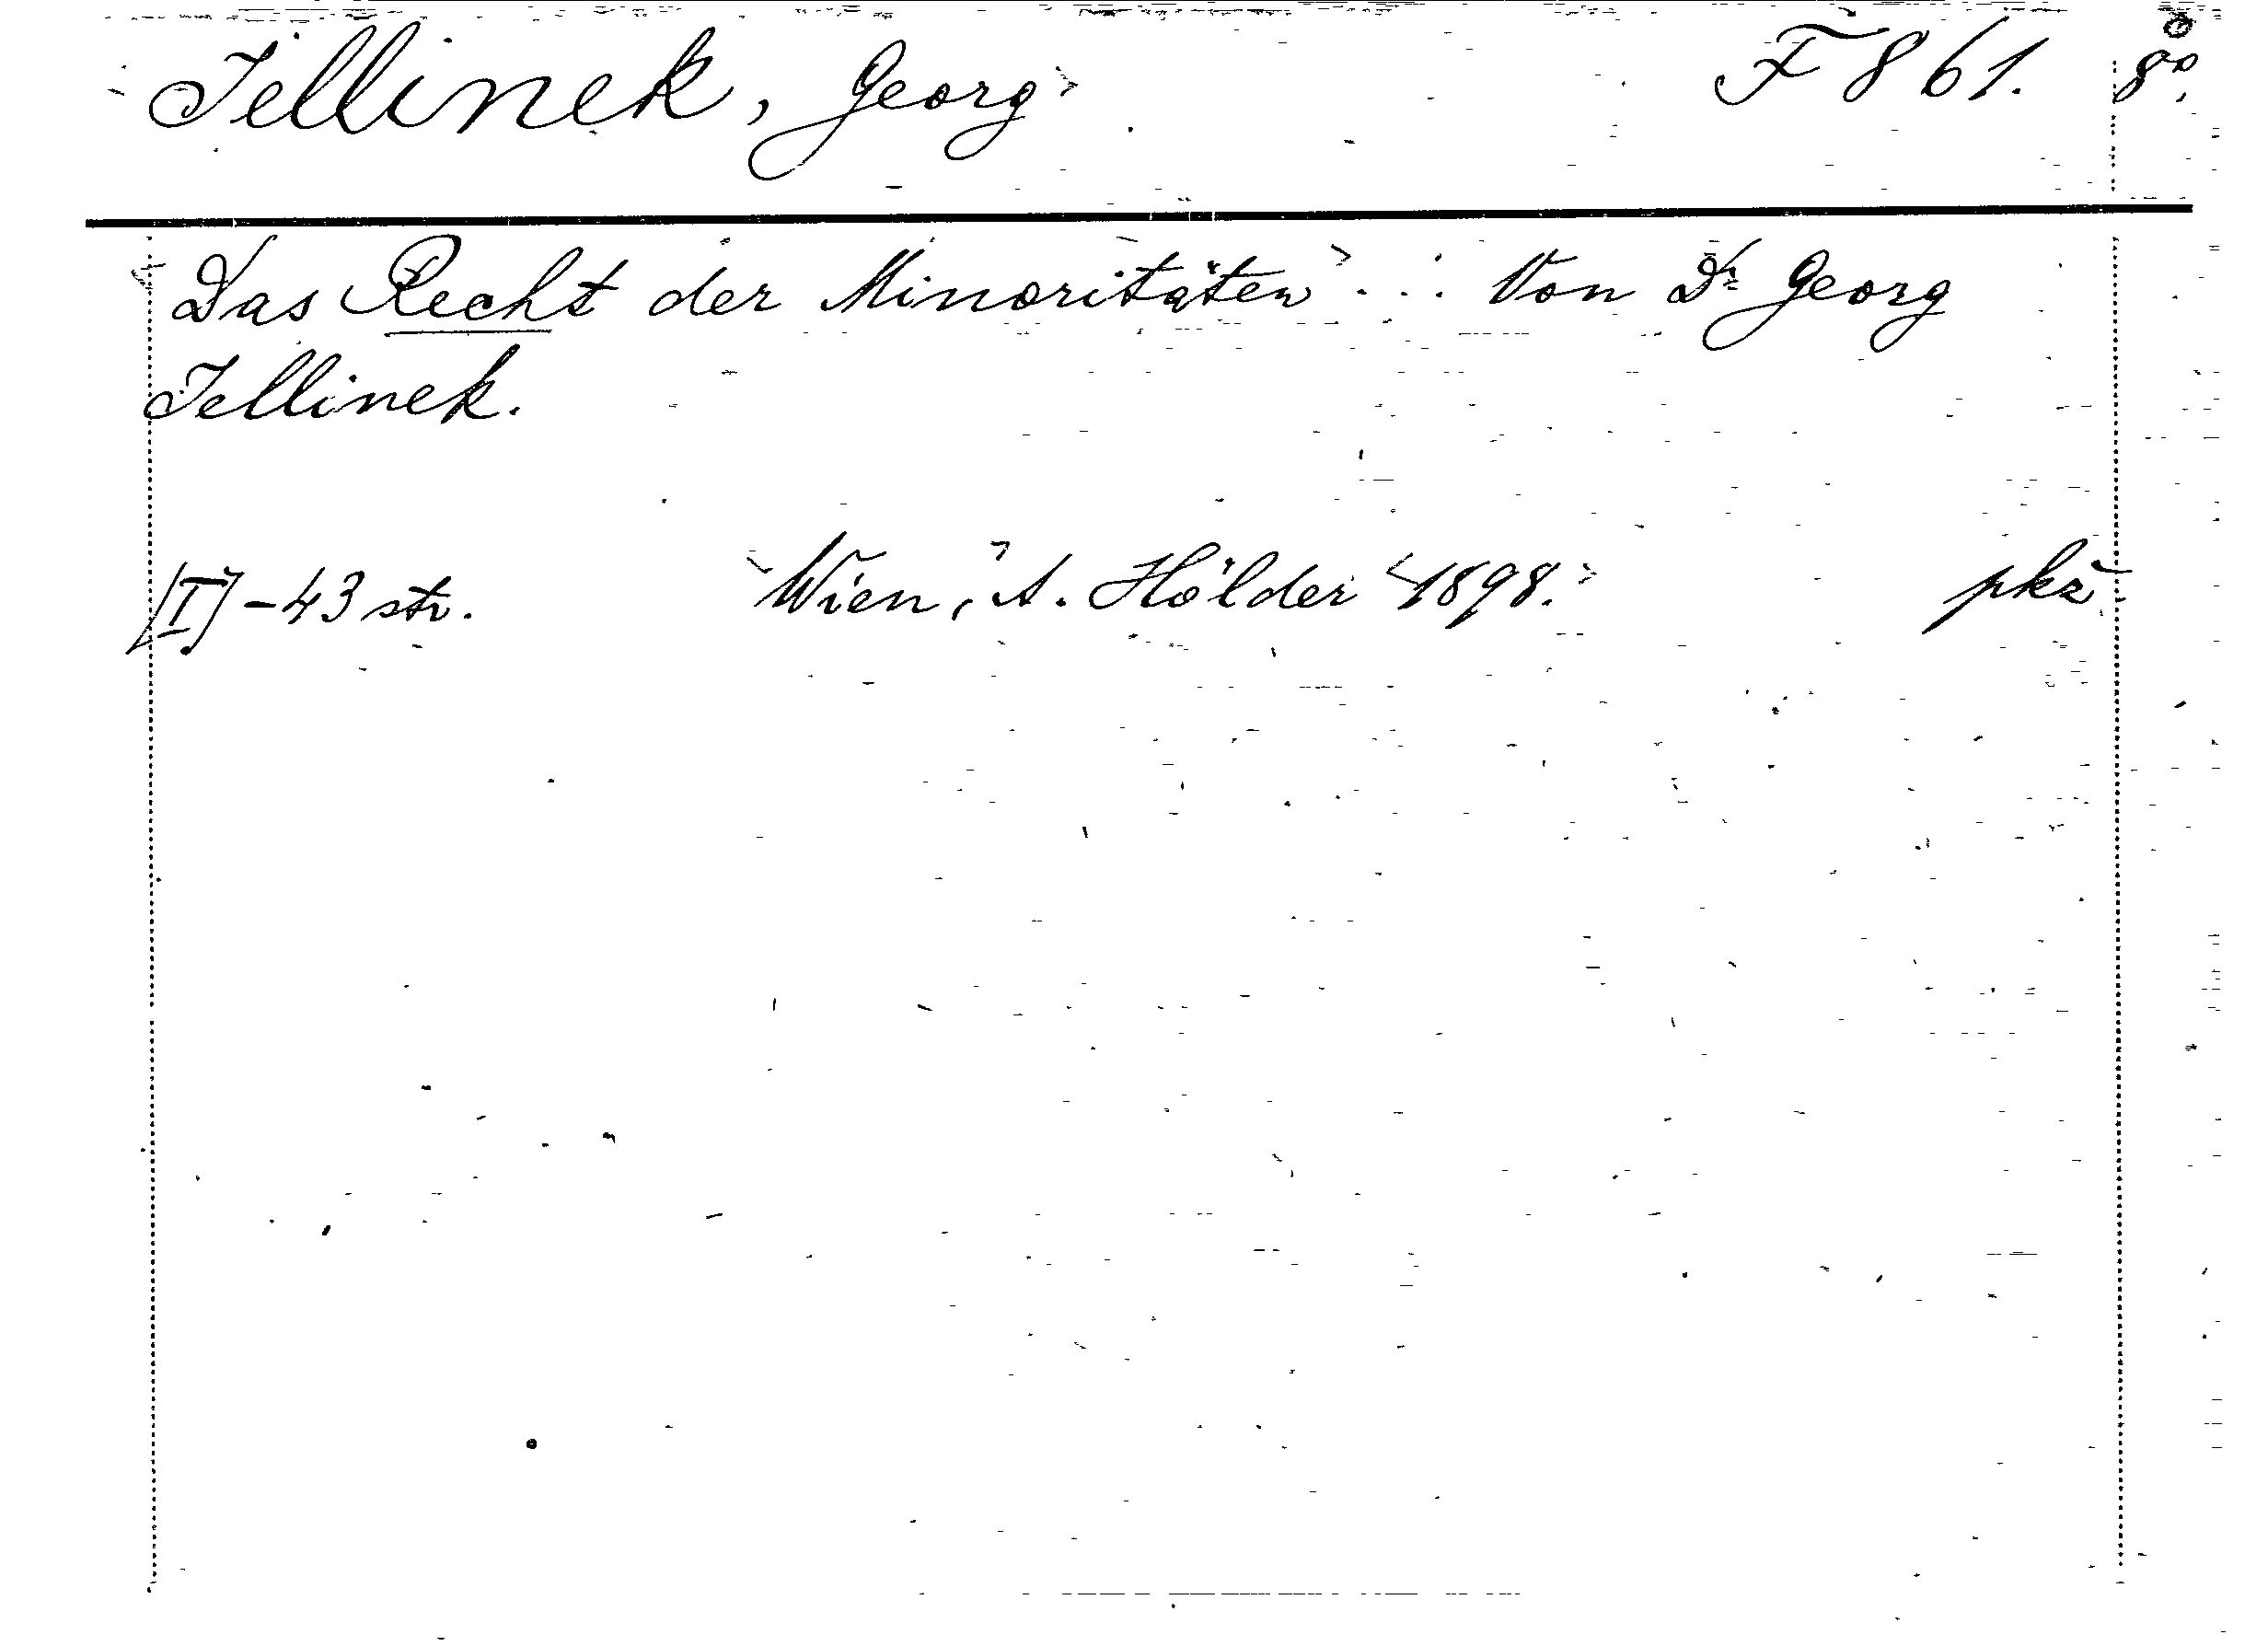 Jellinek, Georg F 861. 8°.
Das Recht der Minoritäten ... Von Dr Georg
Jellinek.
[I] - 43 str. Wien, A. Hölder 1898. pkž